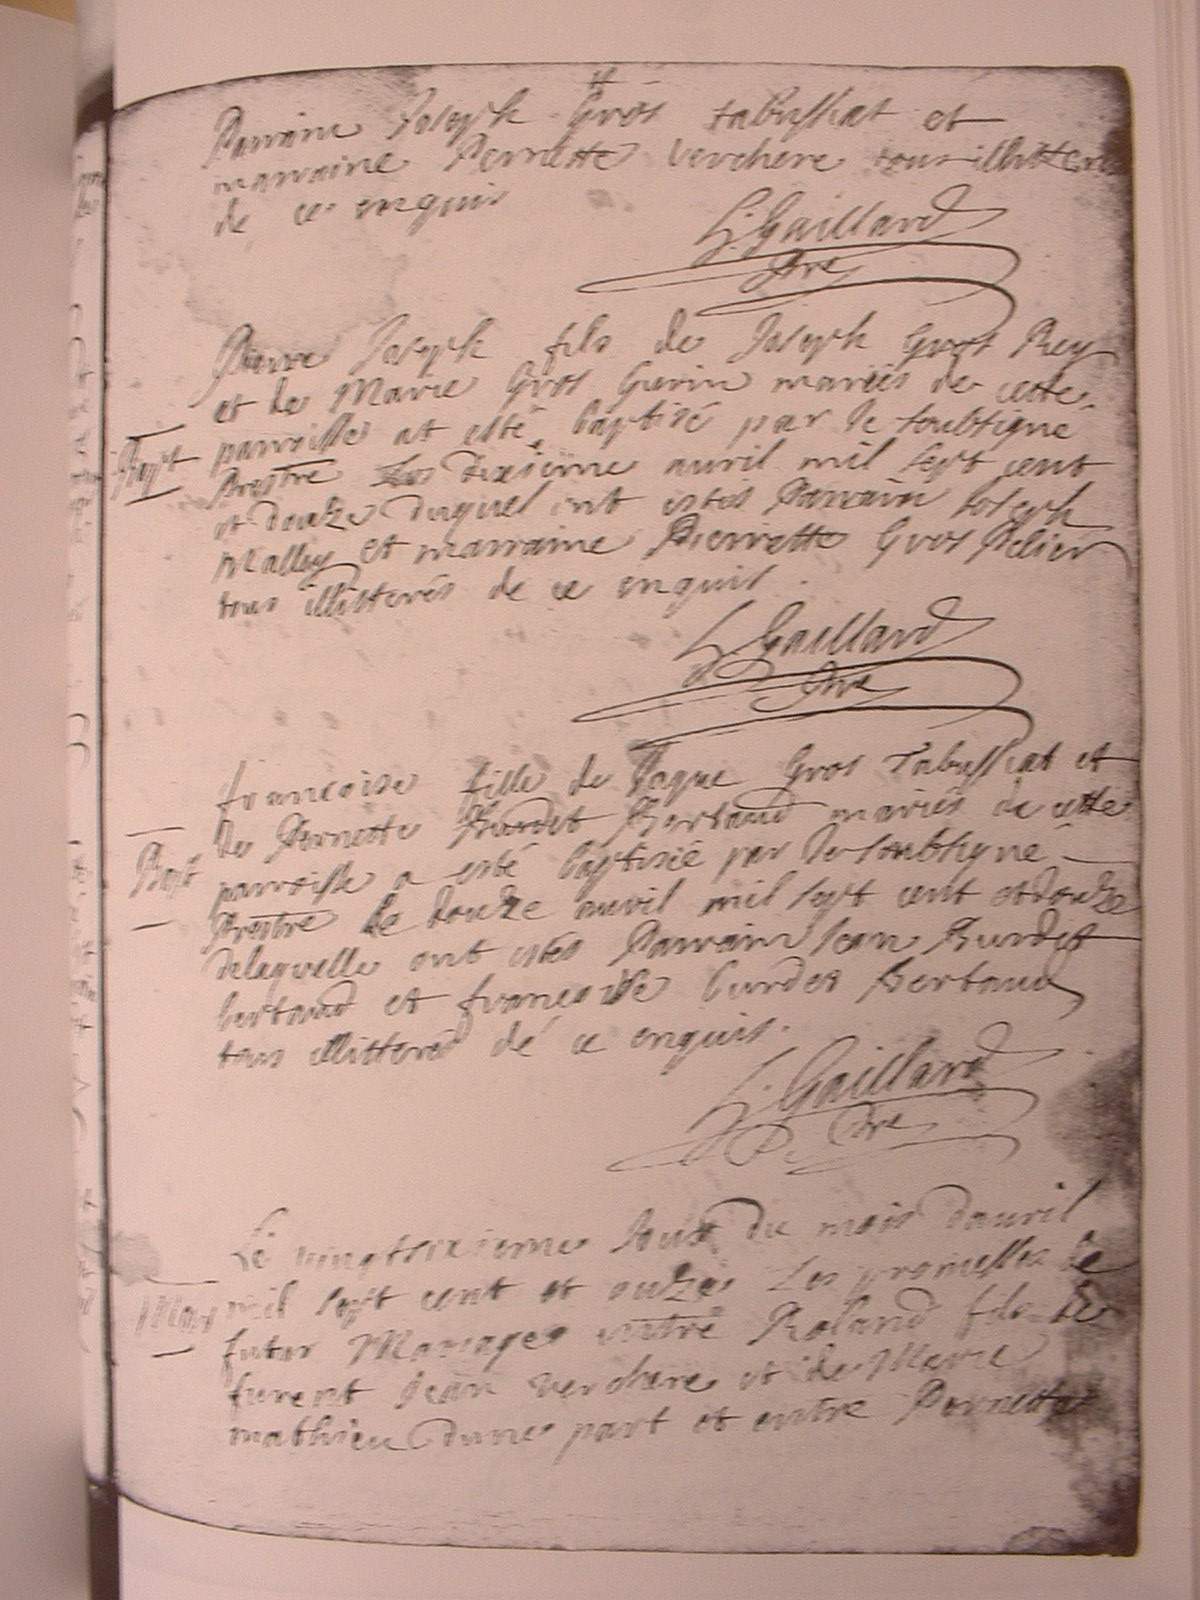 Parrain Joseph Gros tabussiat et
marraine Pernette Verchere tous illitterés
de ce enquis
Gaillard
Pre
Pierre Joseph fils de Joseph Gros Rey
et de Marie Gros Gurin mariés de cette
parroisse at esté baptisé par le soubsigné
Bapt
Prestre Les dixieme auril mil sept cent
et douze duquel ont estés Parrain Joseph
Malley et marraine Pierrette Gros Pelier
tous illitterés de ce enquis.
Gaillard
Pre
francoise fille de Jaque Gros Tabussiat et
De Pernette Burdet Bertaud mariés de cette
Bapt
parroisse a esté baptisée par le soubsigné
Prestre Le douze auril mil sept cent et douze
delaquelle ont estés Parrain Jean Burdet
bertaud et francoise burdet Bertaud
tous illitterés de ce enquis.
Gaillard
Pre
Le vingtsixieme Jour du mois dauril
Mar
mil sept cent et onze Les promesses de
futur Mariage entre Roland fils de
furent Jean verchere et de Marie
mathieu dune part et entre Pernette